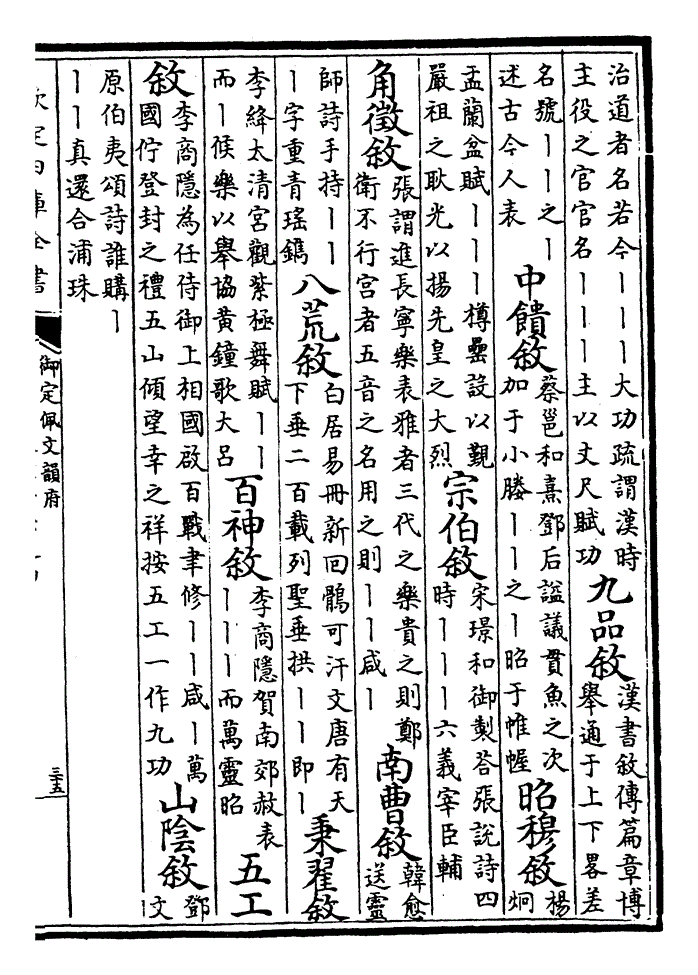 治道者名若今｜｜｜大功疏謂漢時
主役之官官名｜｜｜主以丈尺賦功
九品敘
漢書敘傳篇章博
舉通于上下畧差
名號｜｜之｜
述古今人表
中饋敘
蔡邕和熹鄧后謚議貫魚之次
加于小媵｜｜之｜昭于帷幄
昭穆敘
楊
炯
盂蘭盆賦｜｜｜樽罍設以覲
嚴祖之耿光以揚先皇之大烈
宗伯敘
宋璟和御製荅張說詩四
時｜｜｜六義宰臣輔
角徵敘
張謂進長寧樂表雅者三代之樂貴之則鄭
衛不行宮者五音之名用之則｜｜咸｜
南曹敘
韓愈
送靈
師詩手持｜｜
｜字重青瑤鐫
八荒敘
白居易冊新回鶻可汗文唐有天
下垂二百載列聖垂拱｜｜即｜
秉翟敘
李絳太清宮觀紫極舞賦｜｜
而｜候樂以舉協黃鐘歌大呂
百神敘
李商隱賀南郊赦表
｜｜｜而萬靈昭
五工
敘
李商隱為任侍御上相國啟百戰聿修｜｜咸｜萬
國佇登封之禮五山傾望幸之祥按五工一作九功
山陰敘
鄧
文
原伯夷頌詩誰購｜
｜｜真還合浦珠
欽定四庫全書
御定佩文韻府
三五